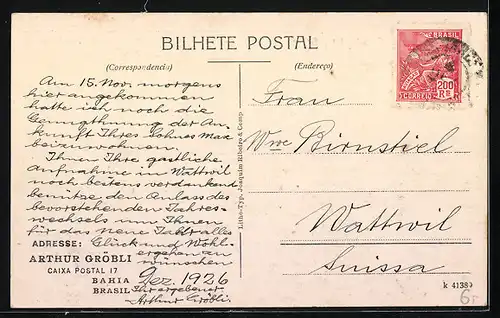 BILHETE POSTAL
(Correspondencia)
(Endereço)
BRASIL
CORREIO
200 Rs
Am 15. Nov. morgens
hier angekommen
hatte ich noch die
Genugthuung der An-
kunft Ihres Sohnes Max
beizuwohnen.
Ihnen Ihre gastliche
Aufnahme in Wattwil
noch bestens verdankend
benütze den Anlass des
bevorstehenden Jahres-
wechsels um Ihnen
für das neue Jahr alles
Glück und Wohl-
ergehen an
wünschen
Dez. 1926
Ihr ergebener
Arthur Gröbli.
ADRESSE:
ARTHUR GRÖBLI
CAIXA POSTAL 17
BAHIA
BRASIL
Litho-Typ. Joaquim Ribeiro & Comp.
Frau
Wwe Birnstiel
Wattwil
Suissa
k 41389
6.